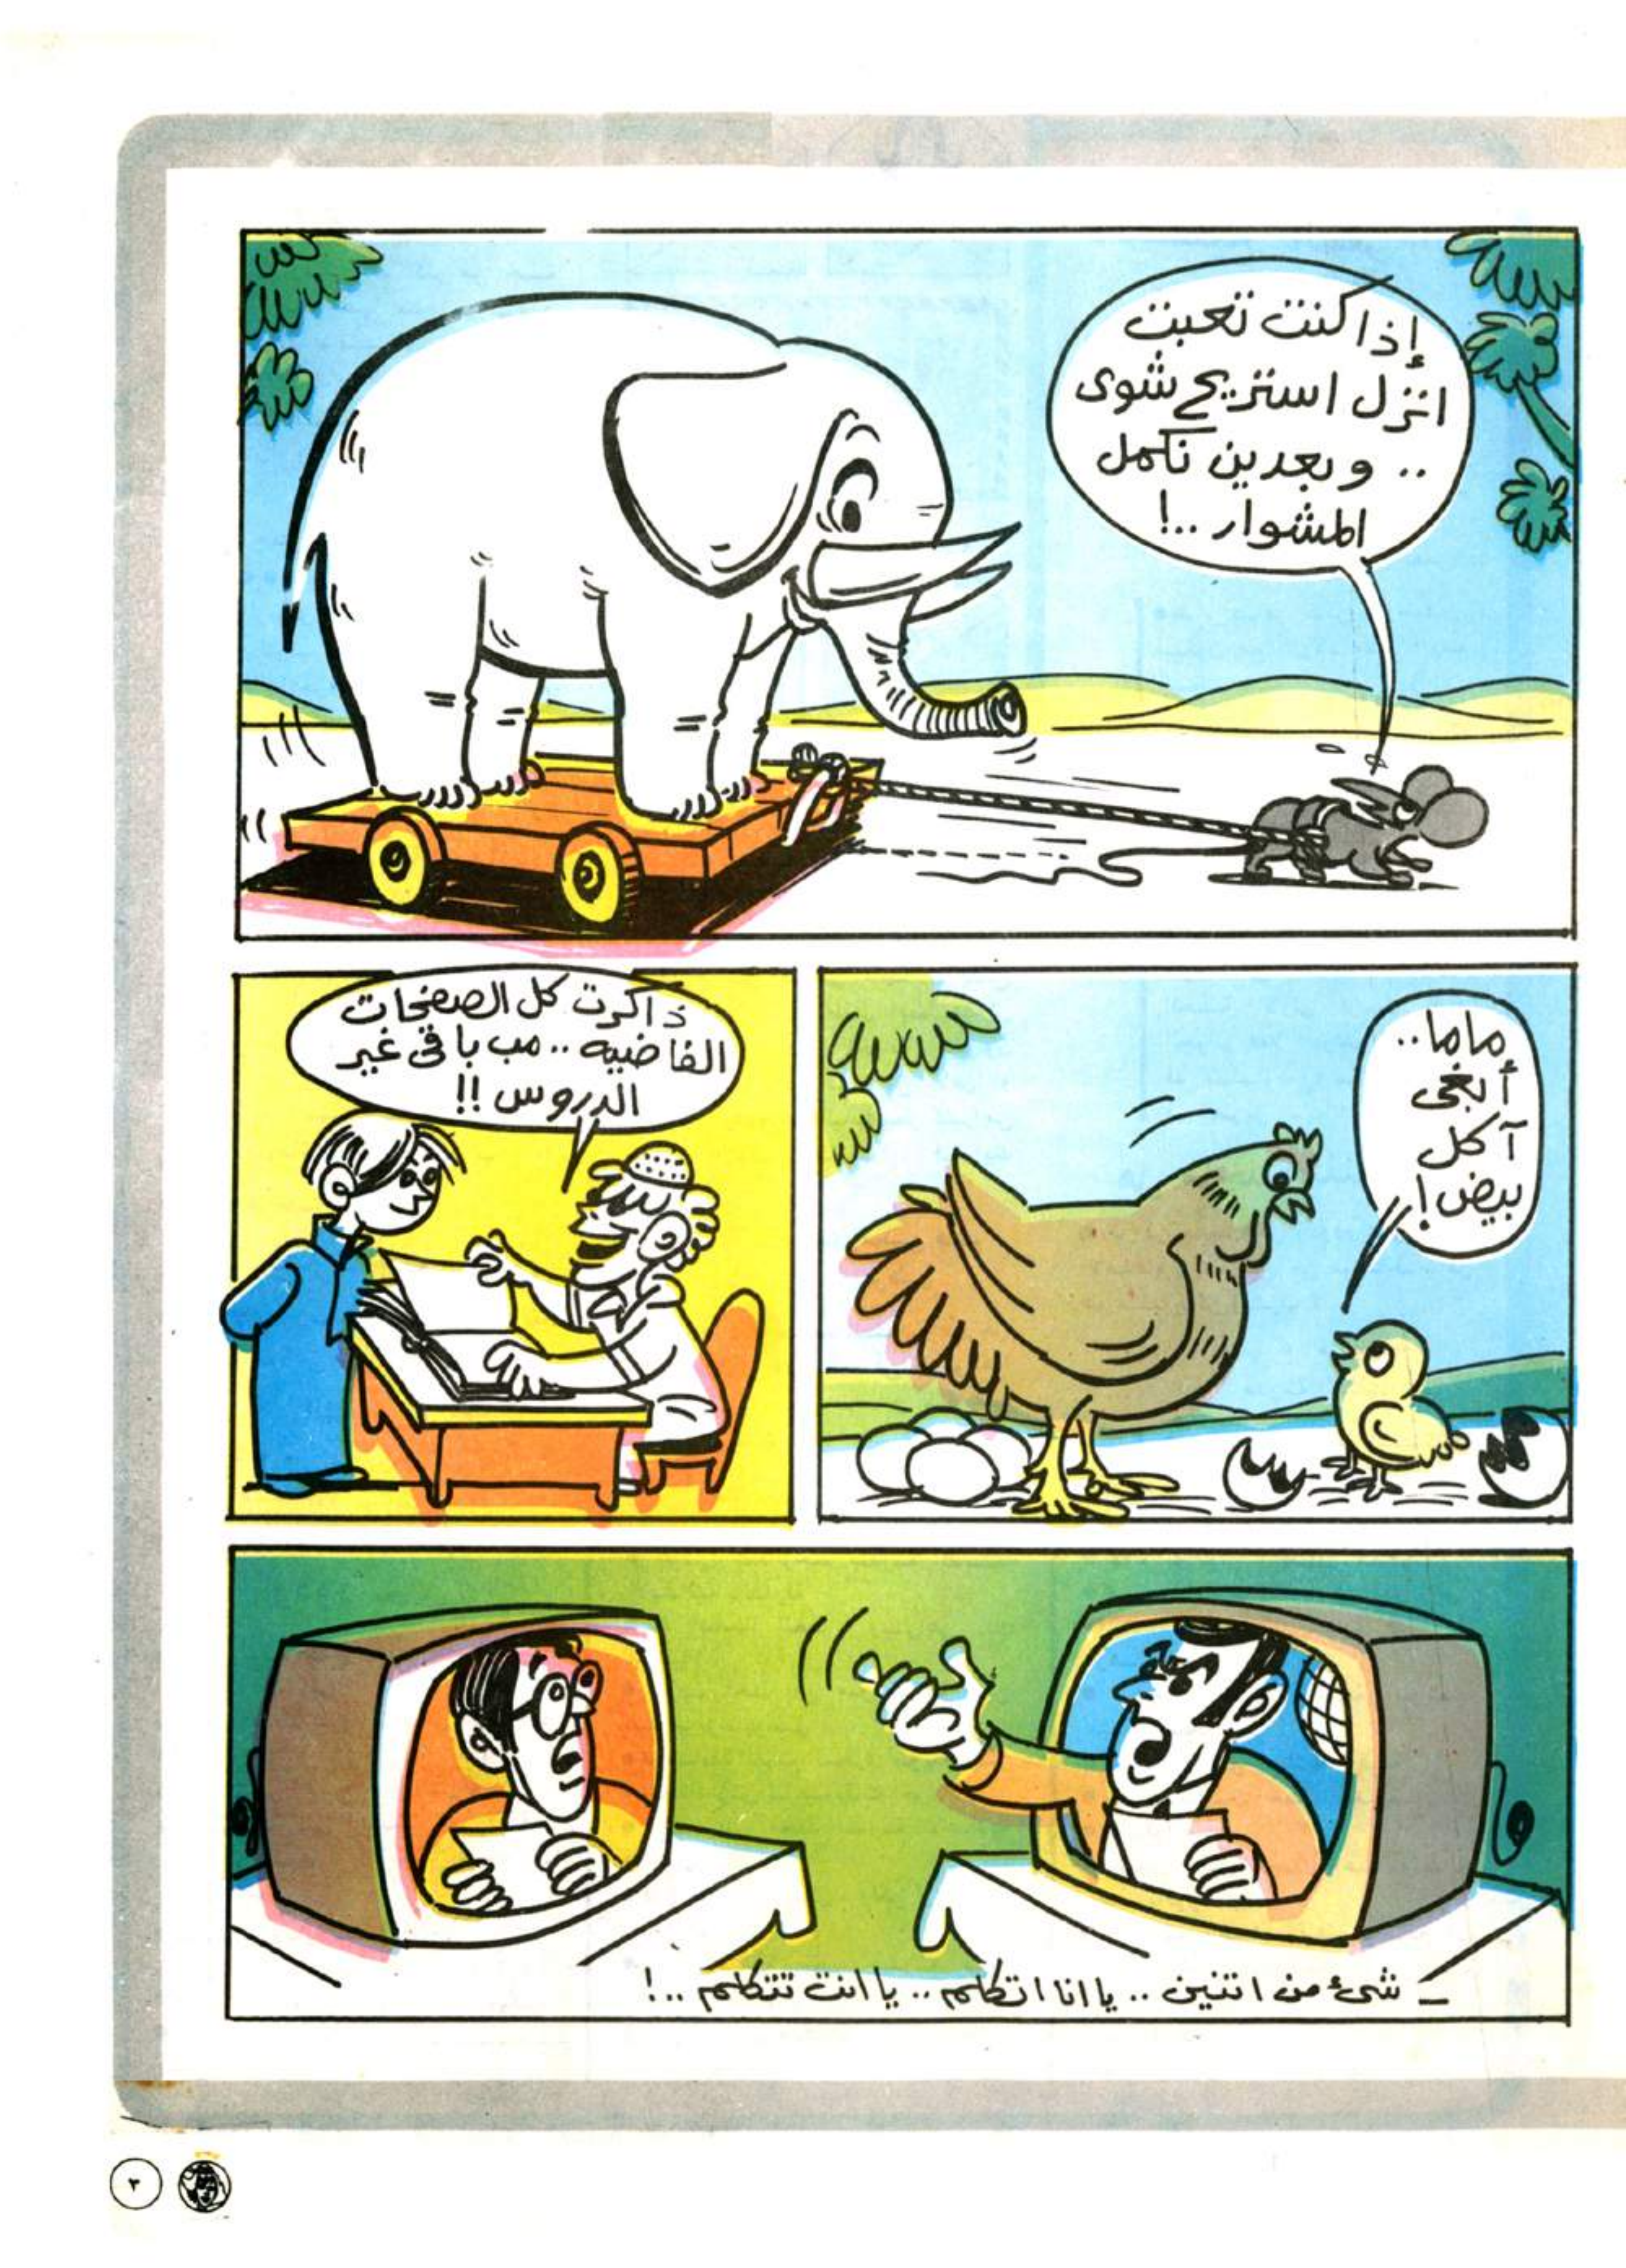 إذا كنت تعبت
انزل استريح شوى
.. وبعدين نكمل
المشوار ..!
ماما..
أبغى
آكل
بيض!
ذاكرت كل الصفحات
الفاضيه .. مب باقى غير
الدروس !!
ـ شىء من اتنين .. يا انا اتكلم .. يا انت تتكلم ..!
٣